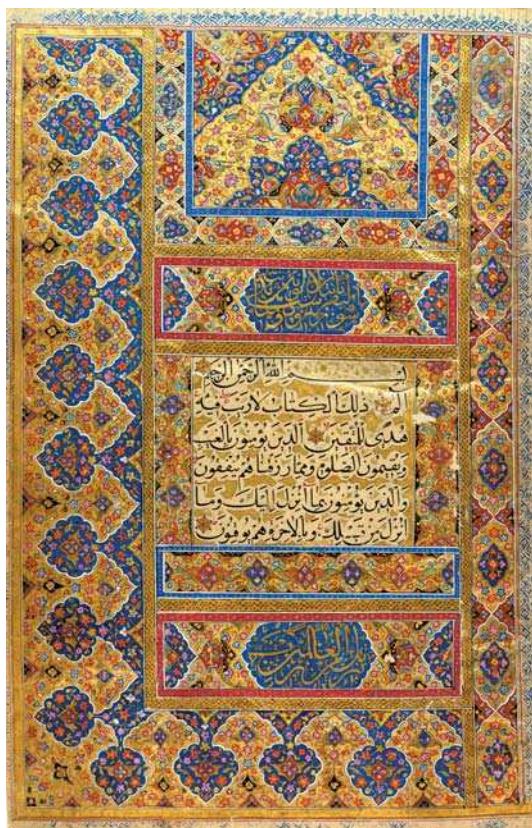 بسم الله الرحمن الرحيم
الم ذلك الكتاب لا ريب فيه
هدى للمتقين الذين يؤمنون بالغيب
ويقيمون الصلوة ومما رزقناهم ينفقون
والذين يؤمنون بما انزل اليك وما
انزل من قبلك وبالاخرة هم يوقنون